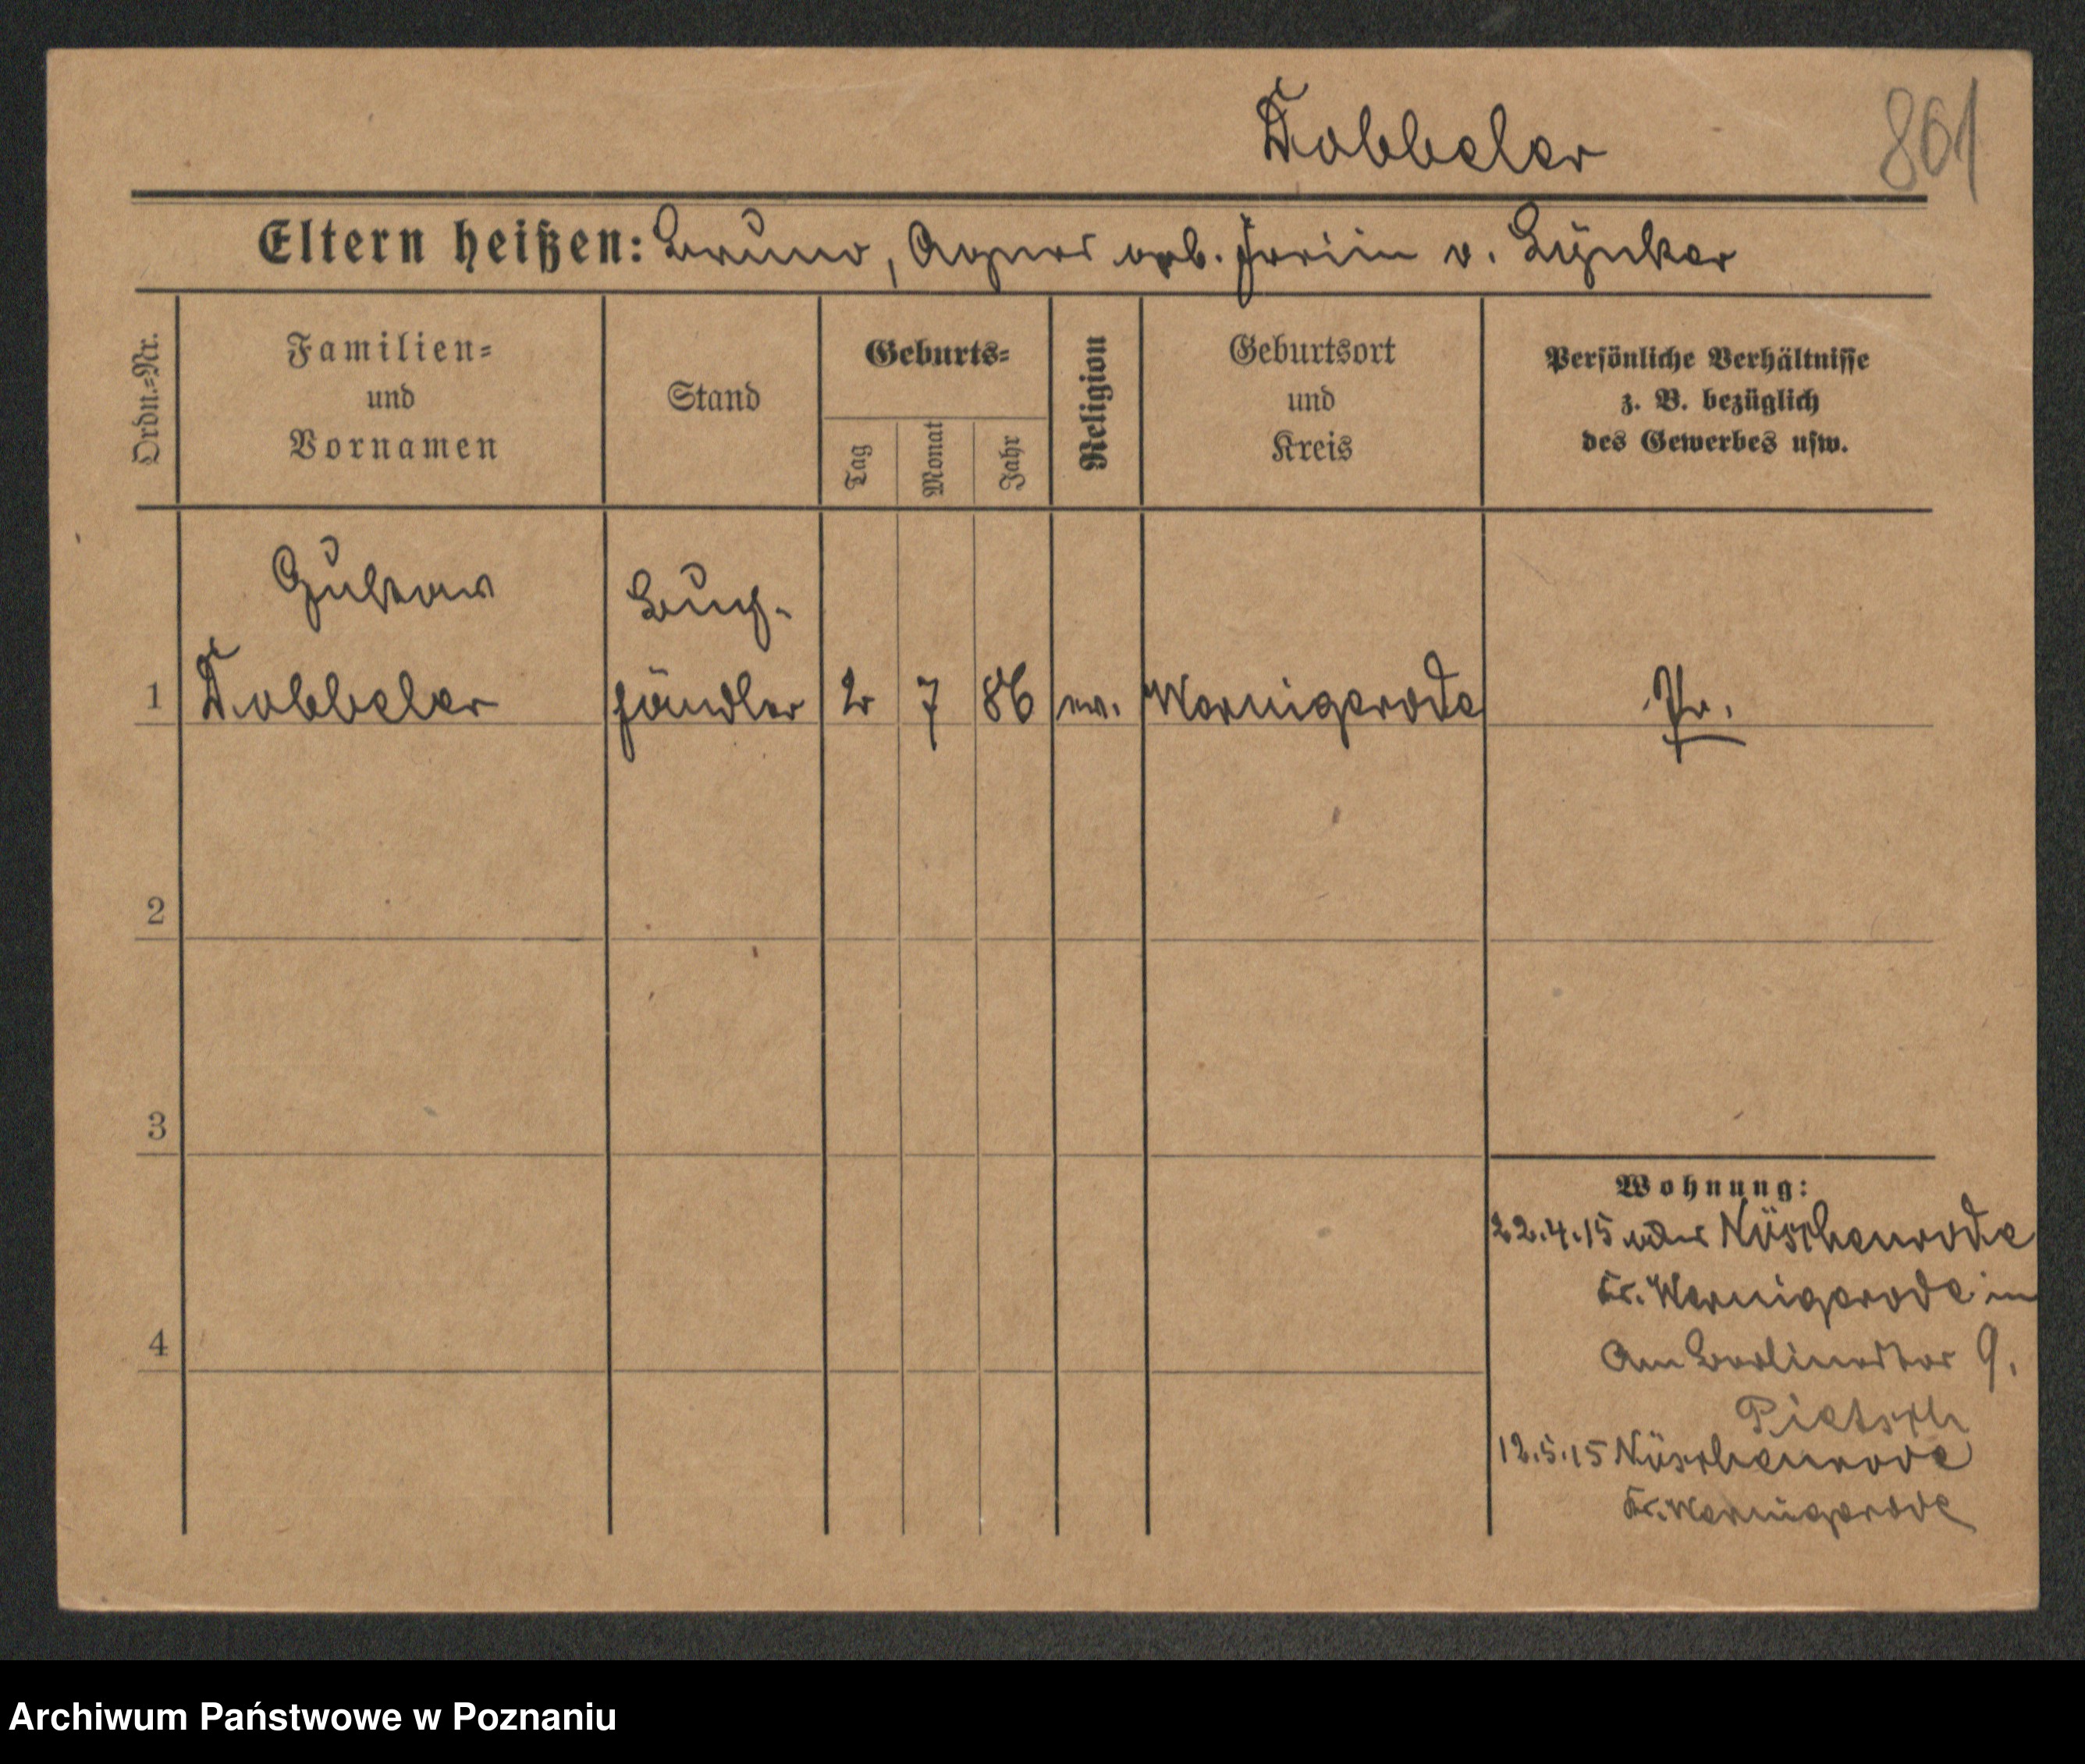 Dobbeler
861
Eltern heißen: Bruno, Agnes geb. Freiin v. Lynker
Ordn.=Nr.
Familien=
und
Vornamen
Stand
Geburts=
Tag
Monat
Jahr
Religion
Geburtsort
und
Kreis
Persönliche Verhältnisse
z. B. bezüglich
des Gewerbes usw.
1
Gustav
Dobbeler
Buch-
händler
2
7
86
ev.
Wernigerode
Pr.
2
3
4
Wohnung:
22.4.15 Nöschenrode
Kr. Wernigerode in
Am Berlinertor 9.
Pietsch
12.5.15 Nöschenrode
Kr. Wernigerode
Archiwum Państwowe w Poznaniu